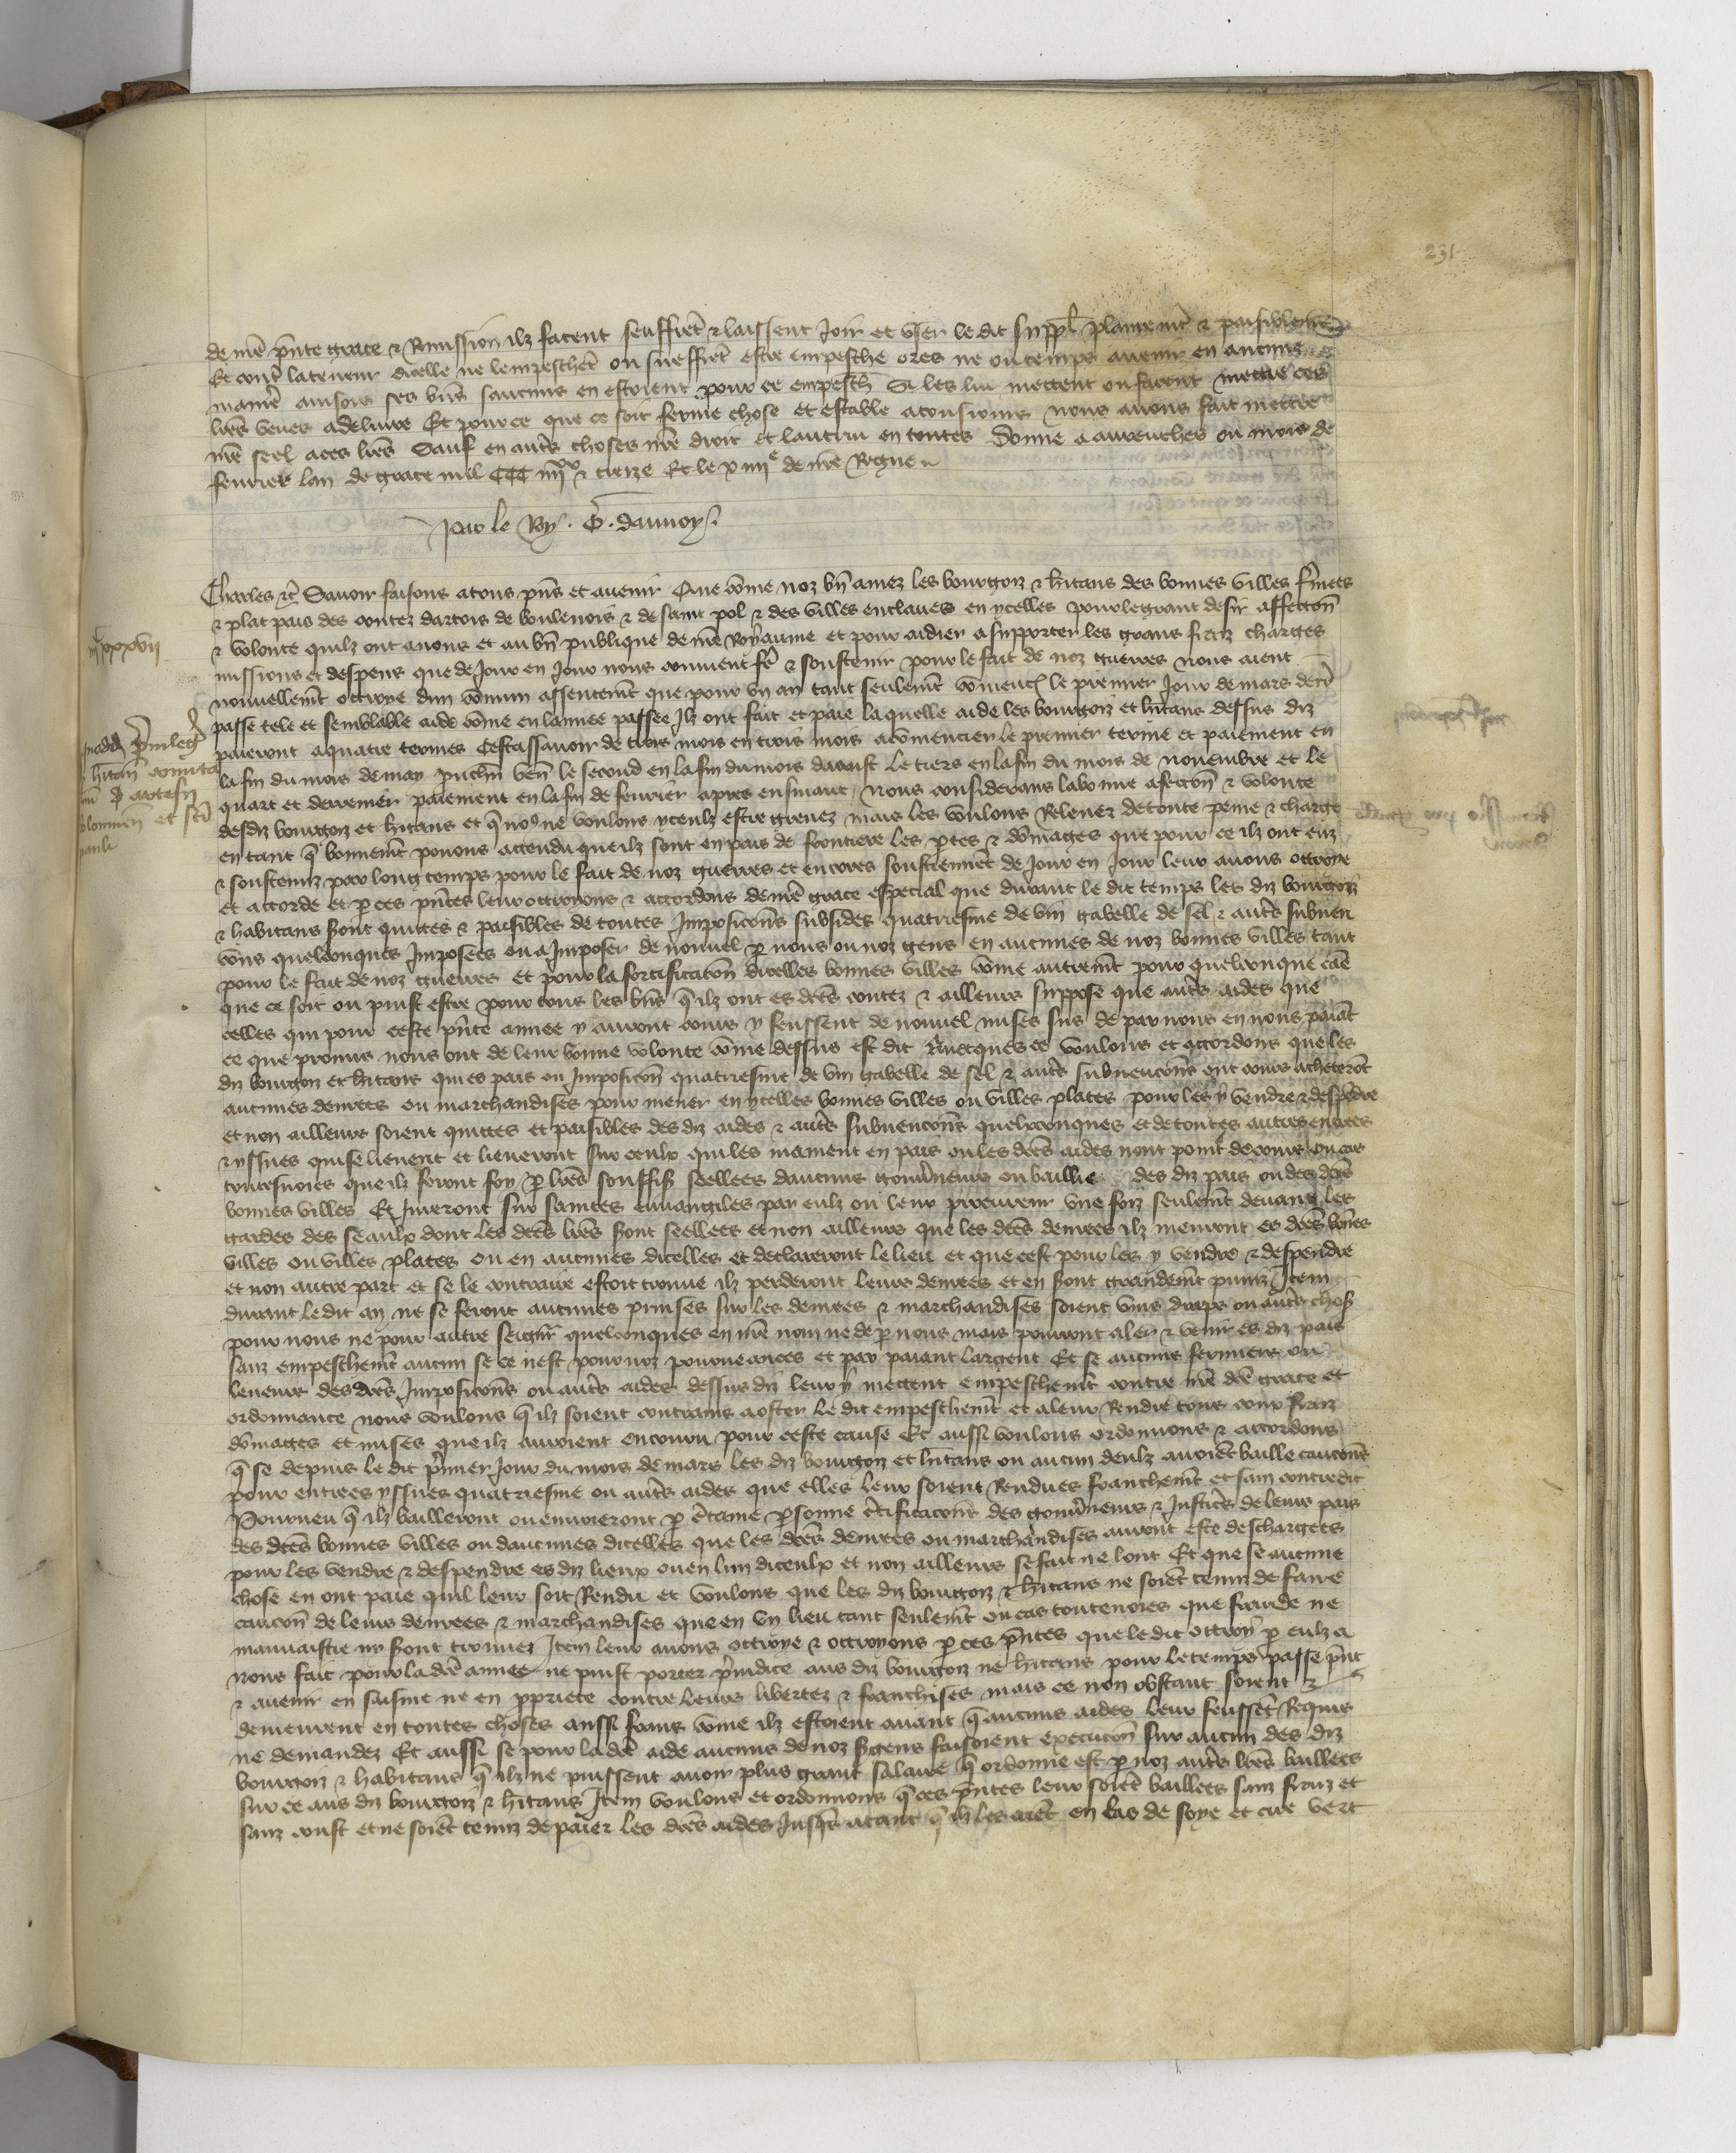 231
de nr̃e p̃nte grace & Remission ilz facent seuffrent & laissent Joir et vser le dit supp̃l plainem̃t & paisiblem̃t
Et cont̃ la teneur dicelle ne lempeschẽt ou sueffrẽt estre empesche ores ne ou temps auenir en aucune
manier̃ ainsois ses bñs saucuns en estoient pour ce empesch̃ Si les lui mettent ou facent mettre ces
lr̃es veues adeliure Et pour ce que ce soit ferme chose et estable atousiours nous auons fait mettre
nr̃e seel aces lr̃es Sauf en autr̃s choses nr̃e droit et lautrui en toutes Donne a aurenches ou mois de
feurier lan de grace mil CCC iiijxx & treze Et le xiiije de nr̃e Regne
Par le Roy . G . daunoy .
Charles &c̃ Sauoir faisons atous p̃ns et auenir Que cõme noz bñ amez les bourgois & hitans des bonnes villes fermees
& plat pais des contez dartois de boulenois & de saint pol & des villes enclauees en ycelles pour le grant desir affecc̃on
& volonte quilz ont anous et au bñ publique de nr̃e Royaume et pour aidier asupporter les grans fraiz charges
missions et despens que de Jour en Jour nous conuient fẽ & soustenir pour le fait de noz guerres nous aient
nouuellem̃t ottroye dun cõmun assentem̃t que pour vn an tant seulem̃t cõmenc̃ le premier Jour de mars derr̃
passe tele et semblable aide cõme en lannee passee Ilz ont fait et paie laquelle aide les bourgois et hitans dessus diz
paieront aquatre termes Cestassauoir de trois mois en trois mois acõmencier le premier terme et paiement en
la fin du mois de may p̃uch̃ũ veñ le second en la fin du mois daoust le tiers en la fin du mois de nouembre et le
quart et derrenier paiement en la fin de feurier apres ensuiant / Nous considerans la bonne afecc̃on & volonte
desdiz bourgois et hitans et q̃ no9 ne voulons yceulz estre greuez mais les voulons Releuer de toute peine & charge
en tant q̃ bonnem̃t pouons attendu que ilz sont en pais de frontiere les ptes & dõmages que pour ce ilz ont euz
& soustenuz par long temps pour le fait de noz guerres et encores soustiennẽt de Jour en Jour leur auons ottroye
et accorde et p ces p̃ntes leur ottroions & accordons de nr̃e grace especial que durant le dit temps les diz bourgois
& habitans sont quittes & paisibles de toutes Imposicõns subsides quatriesme de vin gabelle de sel & autr̃s subuen
cõns quelconques Imposees ou a Imposer de nouuel p nous ou noz gens en aucunes de noz bonnes villes tant
pour le fait de noz guerres et pour la fortificac̃on dicelles bonnes villes cõme autrem̃t pour quelconque cãe
que ce soit ou puist estre pour tous les bñs q̃ ilz ont es dc̃es contez & ailleurs suppose que autr̃s aides que
celles qui pour ceste p̃nte annee y auront cours y feussent de nouuel mises sus de par nous en nous paiãt
ce que promis nous ont de leur bonne volonte cõme dessus est dit Auecques ce voulons et accordons que les
diz bourgois et hitans qui es pais ou Imposicõn quatriesme de vin gabelle de sel & autr̃s subuencõns ont cours acheterõt
aucunes denrees ou marchandises pour mener en ycelles bonnes villes ou villes plates pour les y vendre & despẽdre
et non ailleurs soient quittes et paisibles des diz aides & autr̃s subuencõns quelxconques et de toutes autres entrees
& yssues qui se lieuent et lieueront sur ceulx qui les mainent en pais ou les dc̃es aides nont point de cours ou cas
toutesuoies que ilz feront foy p lr̃es souffis̃ seellees daucuns gouũneurs ou baillis des diz pais ou des dc̃es
bonnes villes Et Jureront sur saintes euuangiles par eulz ou leur procureur vne foiz seulem̃t deuant les
gardes des seaulx dont les dc̃es lr̃es sont seellees et non ailleurs que les dc̃es denrees ilz menront es dc̃es bõnes
villes ou villes plates ou en aucunes dicelles et declareront le lieu et que cest pour les y vendre & despendre
et non autre part et se le contraire estoit trouue ilz perderont leurs denrees et en sont grandem̃t puniz Item
durant le dit an ne se feront aucunes prinses sur les denrees & marchandises soient vins draps ou autr̃s chos̃
pour nous ne pour autre seign̄r quelconques en nr̃e nom ne de p nous mais pourront aler & venir es diz pais
sanz empeschem̃t aucun se ce nest pour noz pourueances et par paiant largent Et se aucuns fermiers ou
leueurs des dc̃es Imposicõns ou autr̃s aides dessus diz leur y mettent empeschem̃t contre nr̃e dc̃e grace et
ordonnance nous voulons q̃ ilz soient contrains aoster le dit empeschem̃t et aleur Rendre tous cous fraiz
dõmages et mises que ilz auroient encouru pour ceste cause Et aussi voulons ordonnons & accordons
q̃ se depuis le dit p̃mier Jour du mois de mars les diz bourgois et hitans ou aucun deulz auoiẽt baille caucõns
pour entrees yssues quatriesme ou autr̃s aides que elles leur soient Rendues franchem̃t et sans contredit
Pourueu q̃ ilz bailleront ou enuoieront p c̃taine psonne c̃tificacõns des gouũneurs & Justic̃s de leurs pais
des dc̃es bonnes villes ou daucunes dicelles que les dc̃es denrees ou marchandises auront este deschargees
pour les vendre & despendre es diz lieux ou en lun diceulx et non ailleurs se fait ne lont Et que se aucune
chose en ont paie quil leur soit Rendu et voulons que les diz bourgois & hitans ne soiẽt tenuz de faire
caucõn de leurs denrees & marchandises que en vn lieu tant seulem̃t ou cas toutenoies que fraude ne
mauuaistie ny sont trouuez Item leur auons ottroye & ottroyons p ces p̃ntes que le dit ottroy p eulz a
nous fait pour la dc̃e annee ne puist porter p̃iudice aus diz bourgois ne hitans pour le temps passe p̃nt
& auenir en saisine ne en ppriete contre leurs libertez & franchises mais ce non obstant soient &
demeurent en toutes choses aussi frans cõme ilz estoient auant q̃ aucuns aides leur feussẽt Requis
ne demandez Et aussi se pour la dc̃e aide aucuns de noz sgens faisoient execucõn sur aucun des diz
bourgois & habitans q̃ ilz ne puissent auoir plus grant salaire q̃ ordonne est p noz autr̃s lr̃es baillees
sur ce aus diz bourgois & hitans Item voulons et ordonnons q̃ ces p̃ntes leur soiẽt baillees sanz fraiz et
sanz coust et ne soiẽt tenuz de paier les dc̃es aides Jusqz atant q̃ ilz les aiẽt en las de soye et cire vert